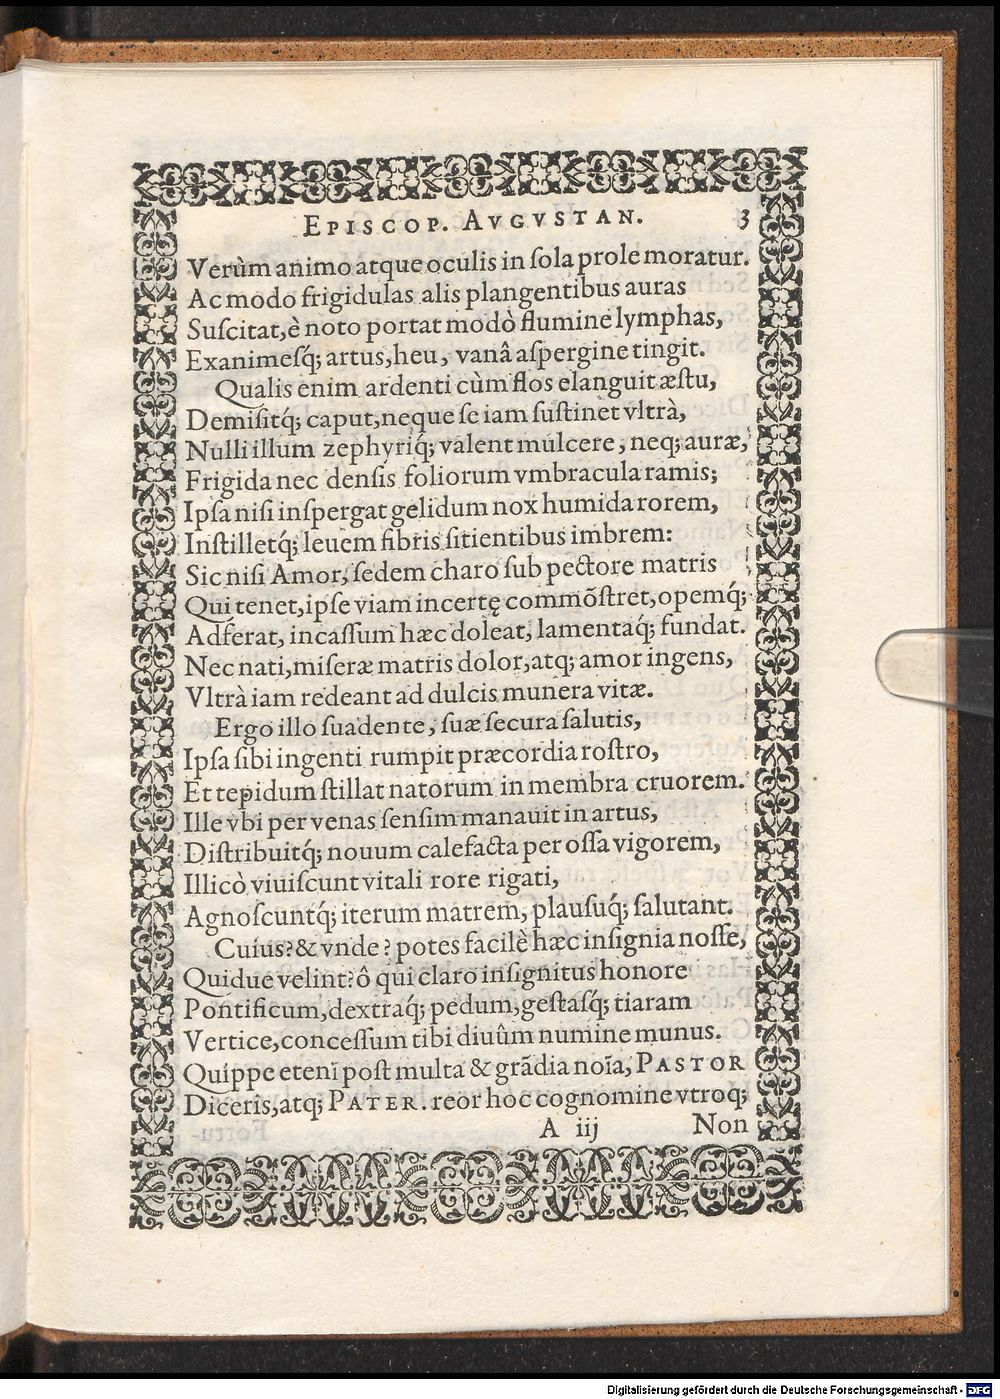 EPISCOP. AVGVSTAN. 3
Verùm animo atque oculis in ſola prole moratur.
Ac modo frigidulas alis plangentibus auras
Suſcitat, è noto portat modò flumine lymphas,
Exanimesq́; artus, heu, vanâ aſpergine tingit.
Qualis enim ardenti cùm flos elanguit æſtu,
Demiſitq́; caput, neque ſe iam ſuſtinet vltrà,
Nulli illum zephyriq́; valent mulcere, neq; auræ,
Frigida nec denſis foliorum vmbracula ramis;
Ipſa niſi inſpergat gelidum nox humida rorem,
Inſtilletq́; leuem fibris ſitientibus imbrem:
Sic niſi Amor, ſedem charo ſub pectore matris
Qui tenet, ipſe viam incertę commõſtret, opemq́;
Adferat, incaſſum hæc doleat, lamentaq́; fundat.
Nec nati, miſeræ matris dolor, atq; amor ingens,
Vltrà iam redeant ad dulcis munera vitæ.
Ergo illo ſuadente, ſuæ ſecura ſalutis,
Ipſa ſibi ingenti rumpit præcordia roſtro,
Et tepidum ſtillat natorum in membra cruorem.
Ille vbi per venas ſenſim manauit in artus,
Diſtribuitq́; nouum calefacta per oſſa vigorem,
Illicò viuiſcunt vitali rore rigati,
Agnoſcuntq́; iterum matrem, plauſuq́; ſalutant.
Cuius? & vnde? potes facilè hæc inſignia noſſe,
Quidue velint: ô qui claro inſignitus honore
Pontificum, dextraq́; pedum, geſtaſq́; tiaram
Vertice, conceſſum tibi diuûm numine munus.
Quippe etenī poſt multa & grãdia noīa, PASTOR
Diceris, atq; PATER. reor hoc cognomine vtroq;
A iij Non
Digitalisierung gefördert durch die Deutsche Forschungsgemeinschaft - DFG